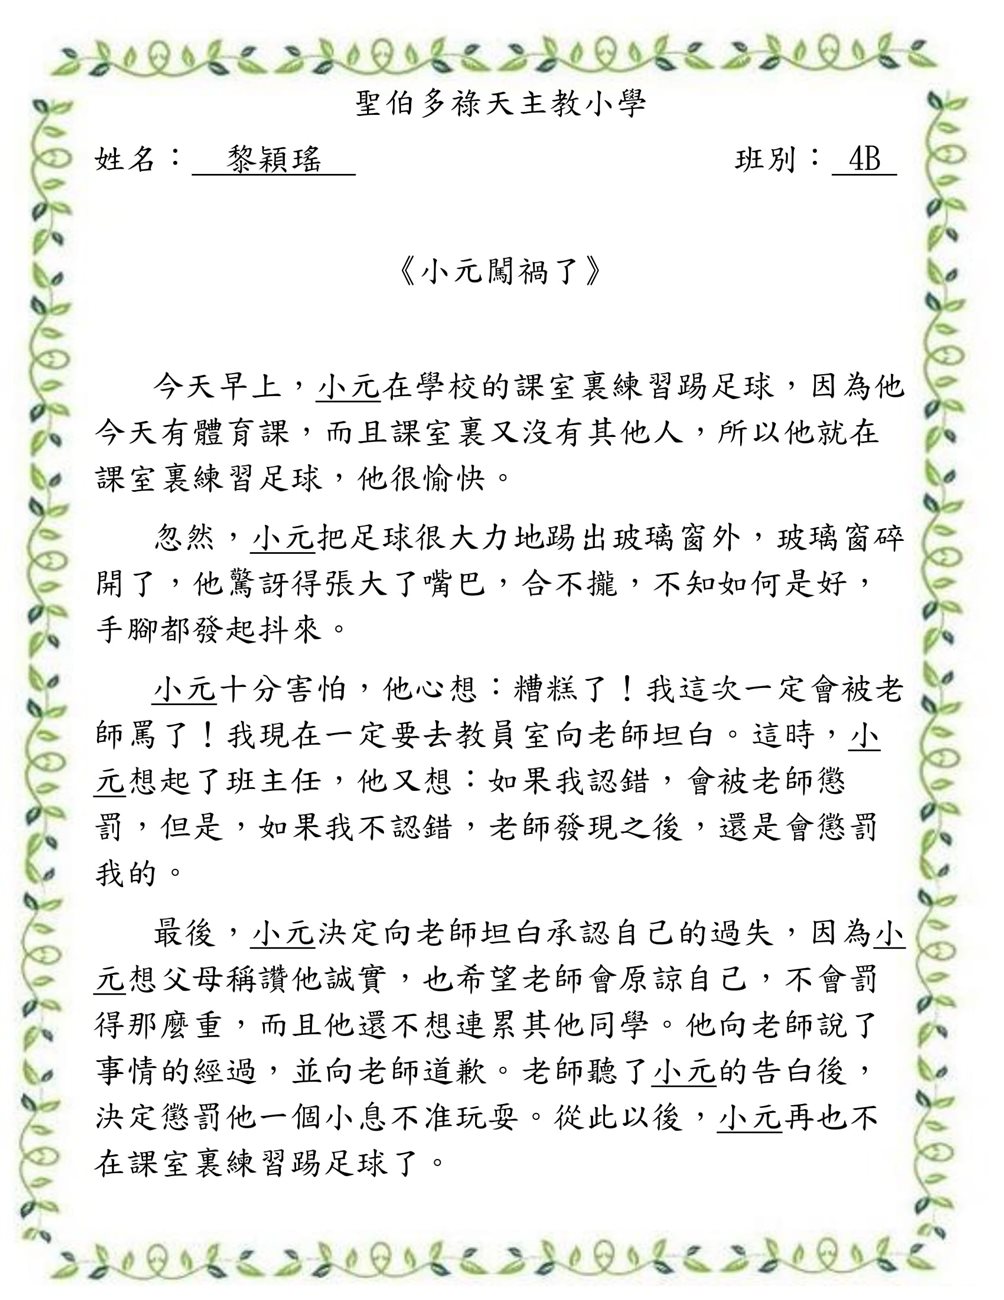 聖伯多祿天主教小學
姓名： 黎穎瑤 班別： 4B
《小元闖禍了》
今天早上，小元在學校的課室裏練習踢足球，因為他
今天有體育課，而且課室裏又沒有其他人，所以他就在
課室裏練習足球，他很愉快。
忽然，小元把足球很大力地踢出玻璃窗外，玻璃窗碎
開了，他驚訝得張大了嘴巴，合不攏，不知如何是好，
手腳都發起抖來。
小元十分害怕，他心想：糟糕了！我這次一定會被老
師罵了！我現在一定要去教員室向老師坦白。這時，小
元想起了班主任，他又想：如果我認錯，會被老師懲
罰，但是，如果我不認錯，老師發現之後，還是會懲罰
我的。
最後，小元決定向老師坦白承認自己的過失，因為小
元想父母稱讚他誠實，也希望老師會原諒自己，不會罰
得那麼重，而且他還不想連累其他同學。他向老師說了
事情的經過，並向老師道歉。老師聽了小元的告白後，
決定懲罰他一個小息不准玩耍。從此以後，小元再也不
在課室裏練習踢足球了。